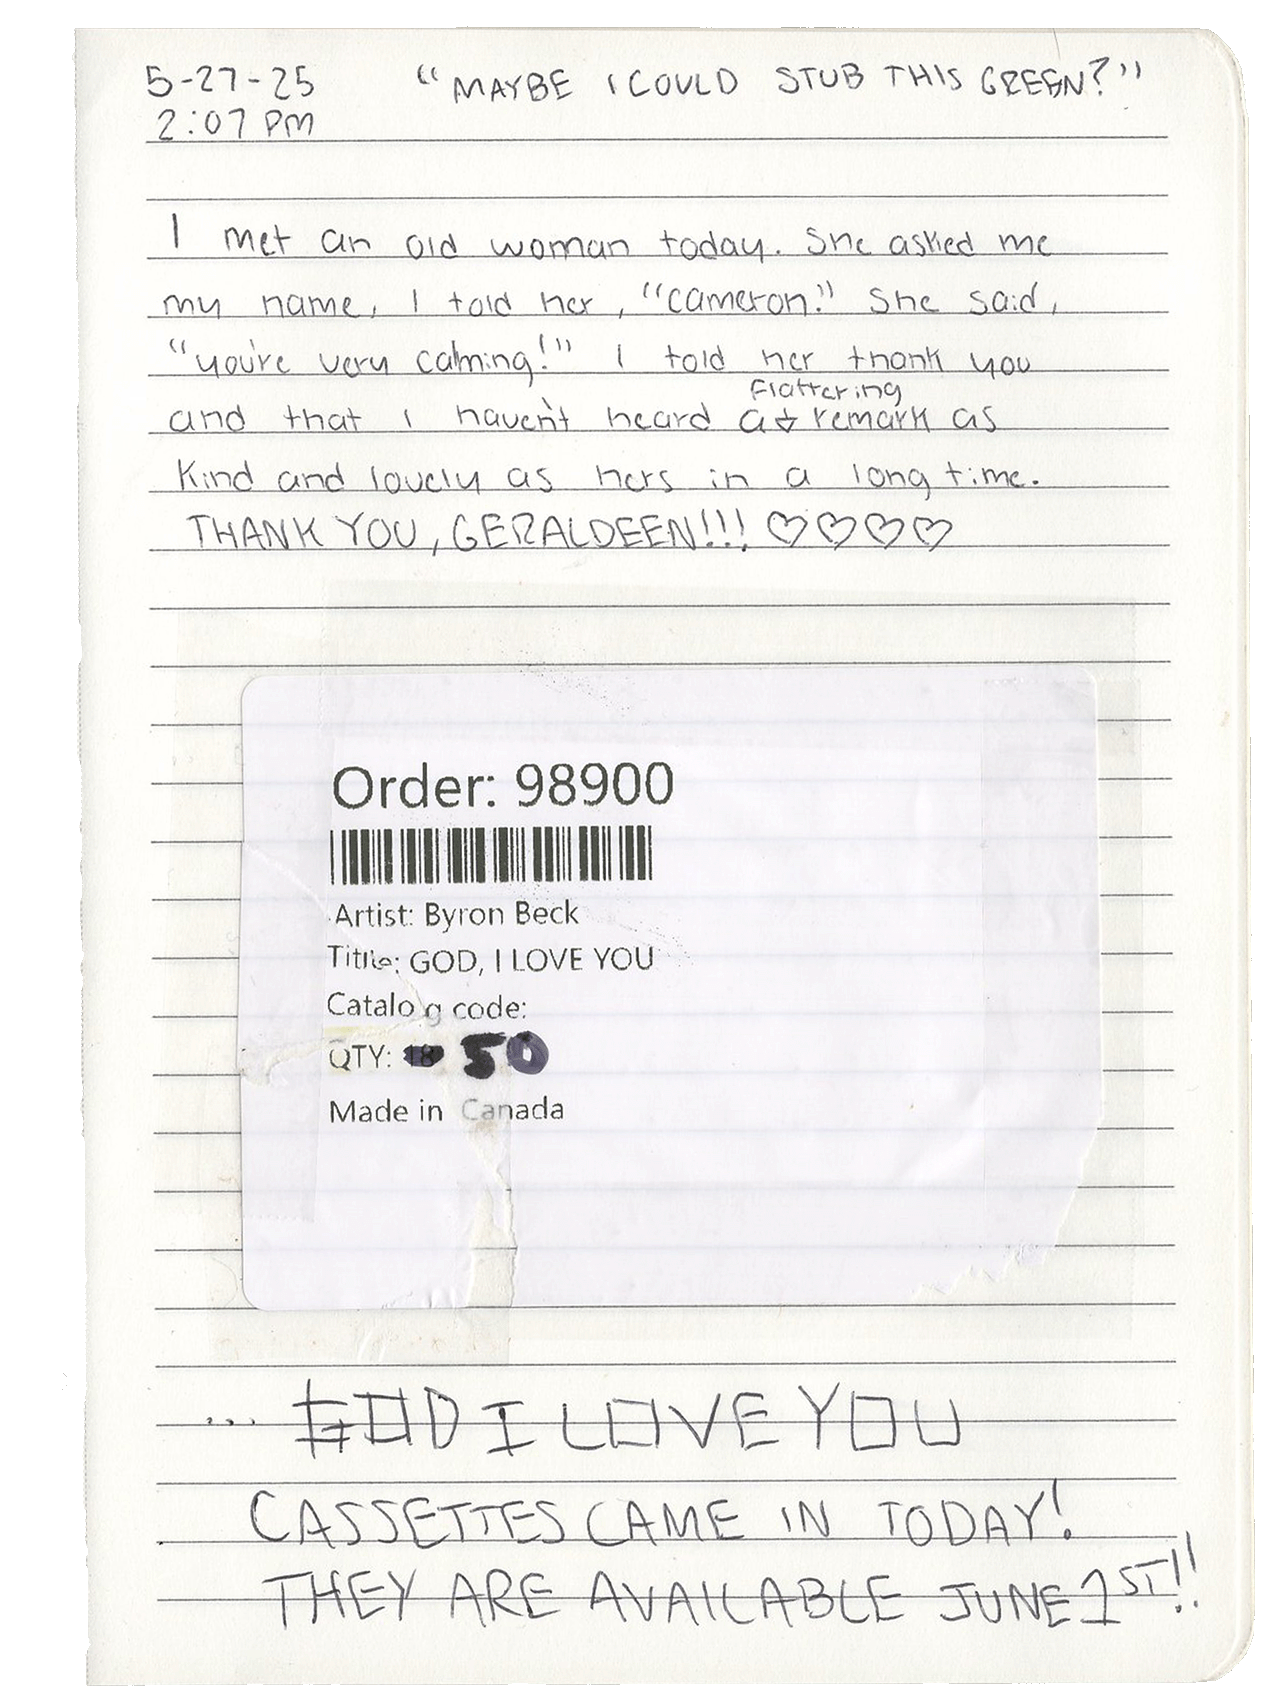 5-27-25 "MAYBE I COULD STUB THIS GREEN?"
2:07 PM
I met an old woman today. She asked me
my name, I told her, "cameron." She said,
"you're very calming!" I told her thank you
flattering
and that I haven't heard a remark as
kind and lovely as hers in a long time.
THANK YOU, GERALDEEN!!! ♡♡♡♡
Order: 98900
Artist: Byron Beck
Title: GOD, I LOVE YOU
Catalog code:
QTY: 18 50
Made in Canada
... GOD I LOVE YOU
CASSETTES CAME IN TODAY!
THEY ARE AVAILABLE JUNE 1ST!!